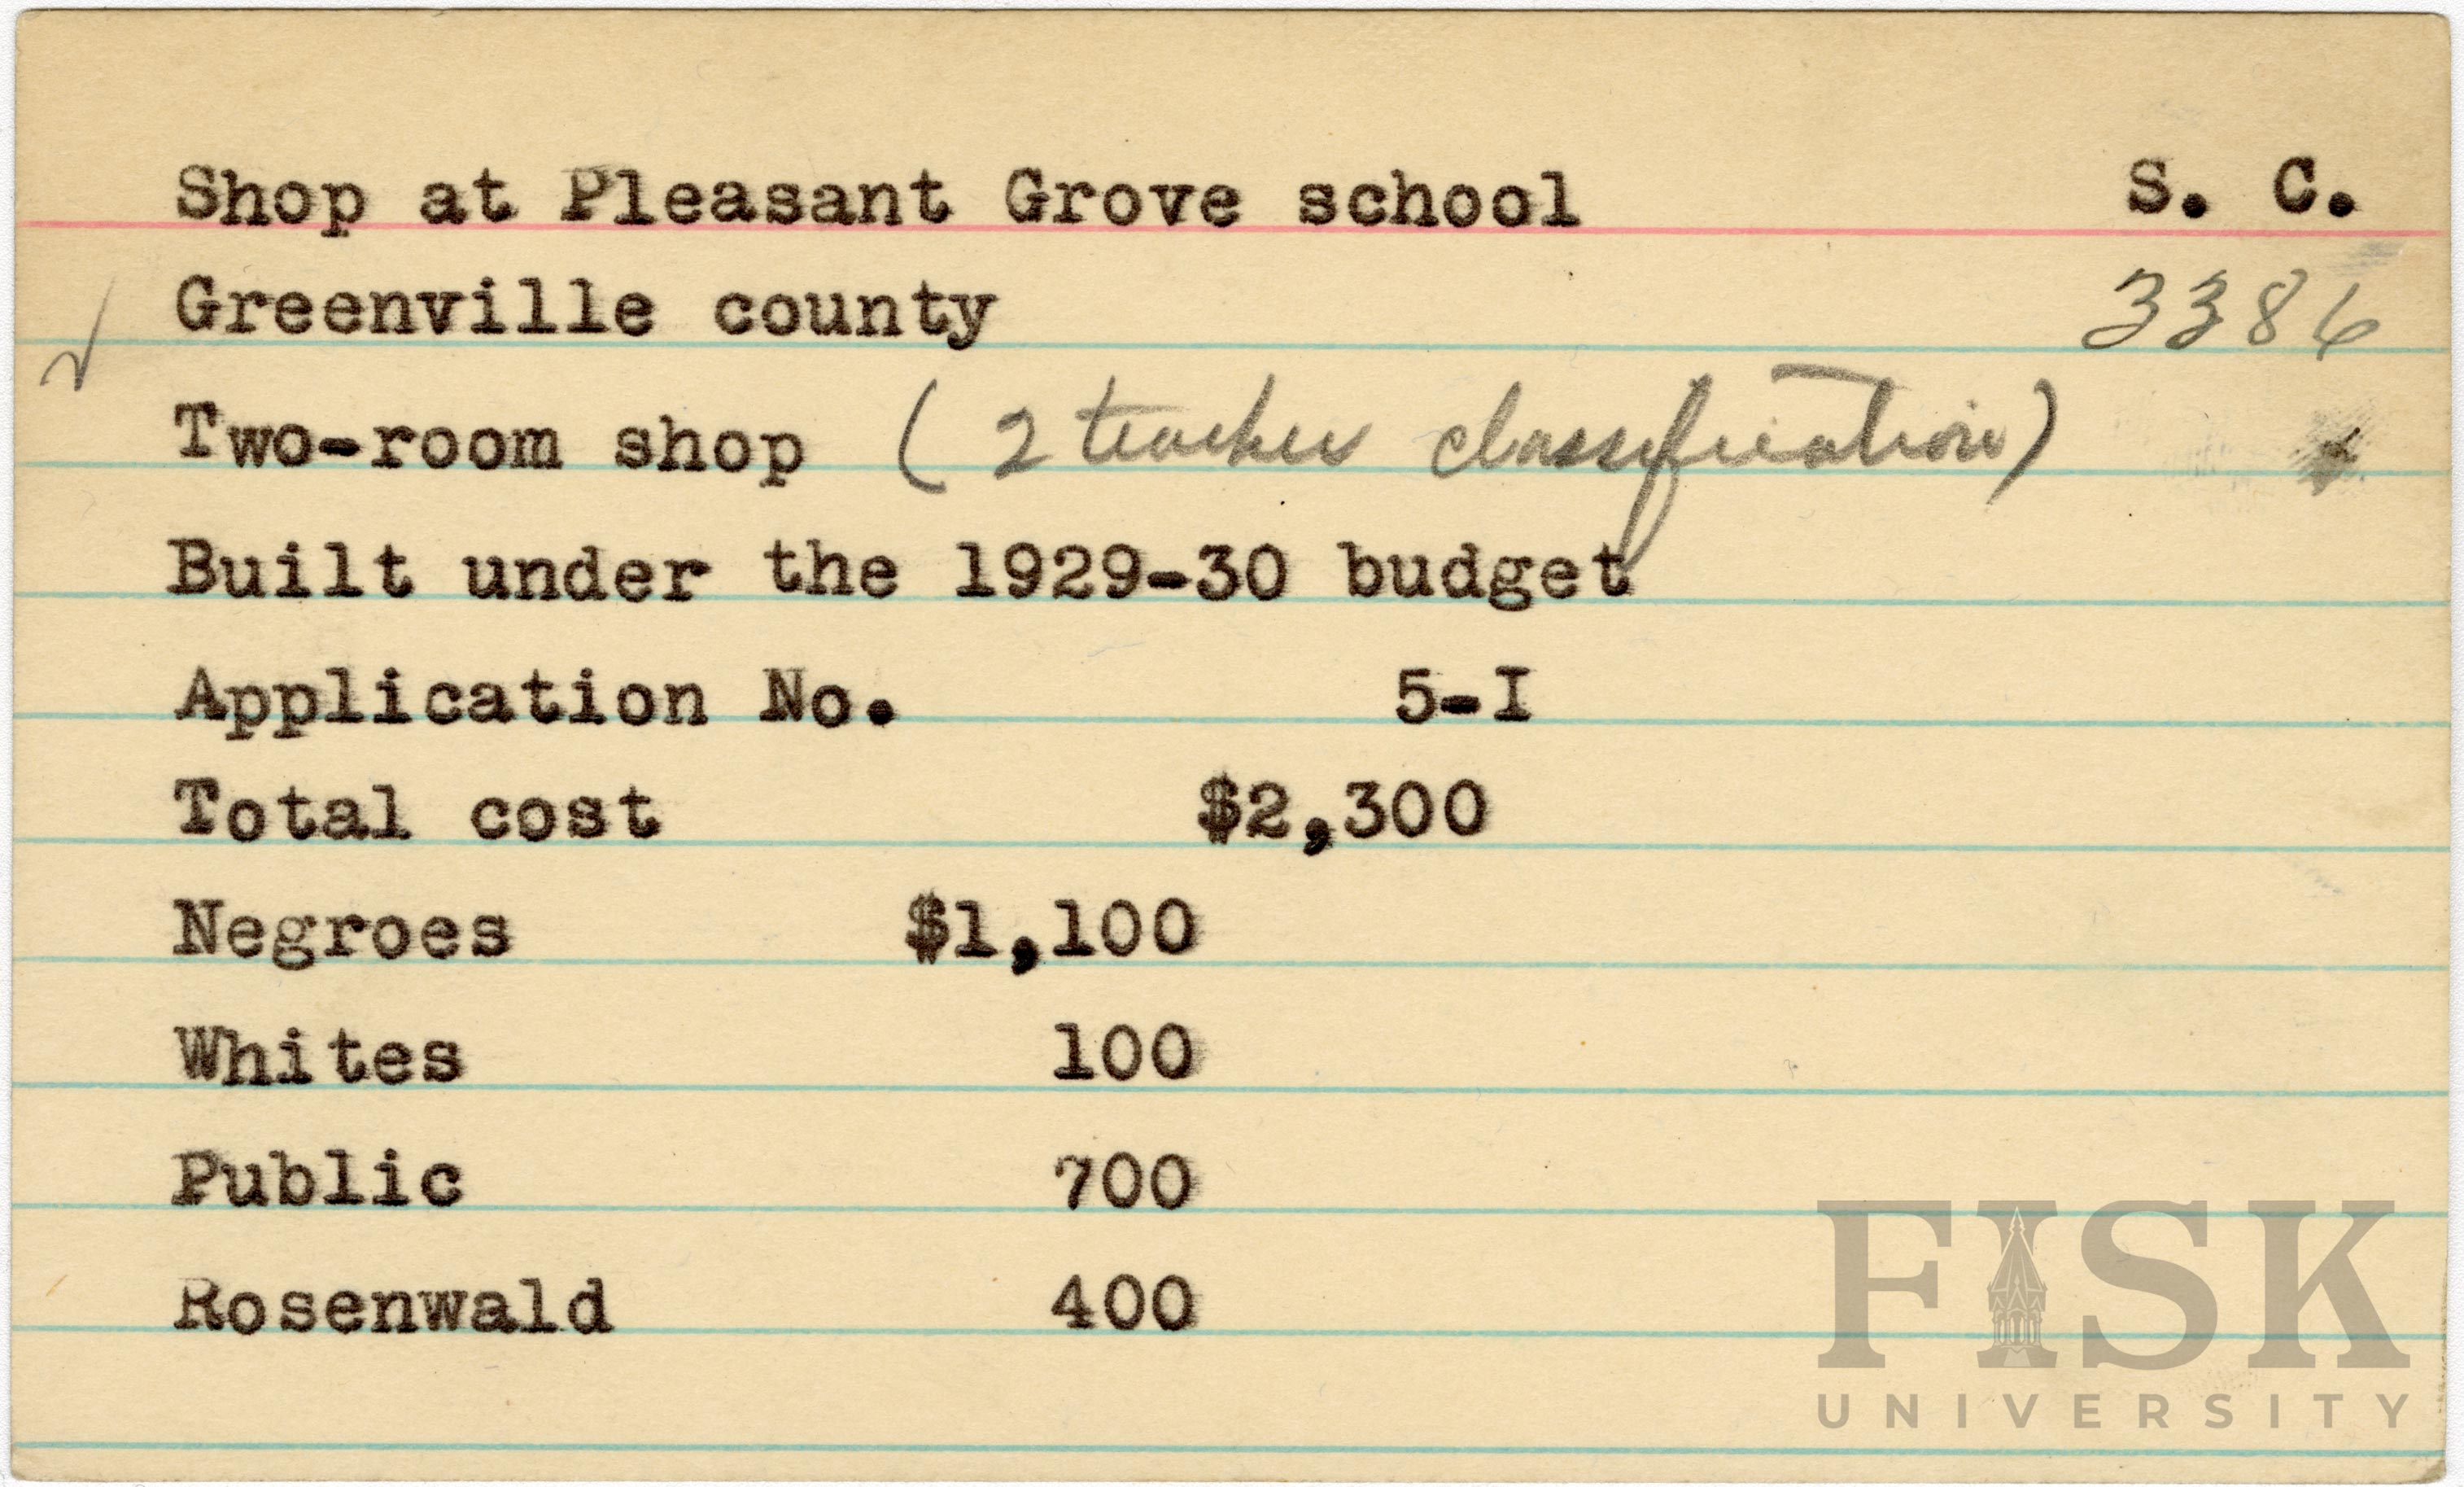 Shop at Pleasant Grove school S. C.
Greenville county 3386
Two-room shop (2 teacher classification)
Built under the 1929-30 budget
Application No. 5-I
Total cost $2,300
Negroes $1,100
Whites 100
Public 700
Rosenwald 400
FISK
UNIVERSITY